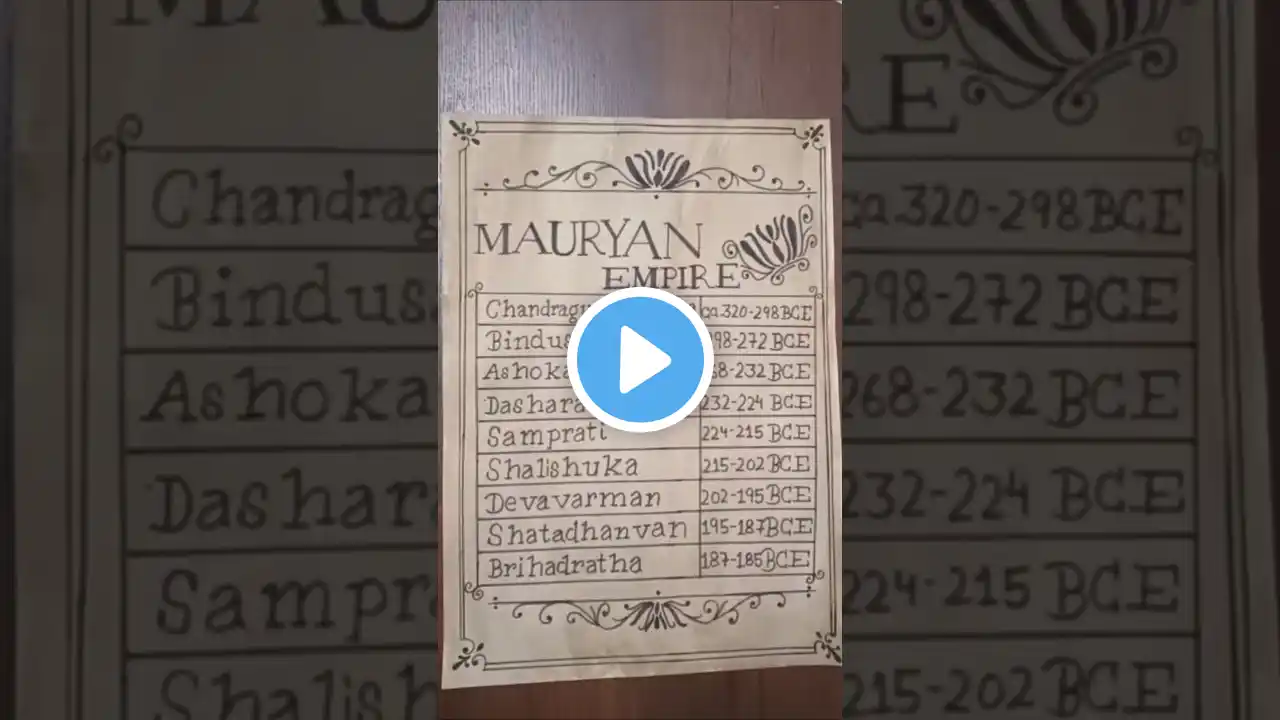 MAURYAN
EMPIRE
Chandragu ca.320-298 BCE
Bindus 298-272 BCE
Ashoka 268-232 BCE
Dashara 232-224 BCE
Samprati 224-215 BCE
Shalishuka 215-202 BCE
Devavarman 202-195 BCE
Shatadhanvan 195-187 BCE
Brihadratha 187-185 BCE